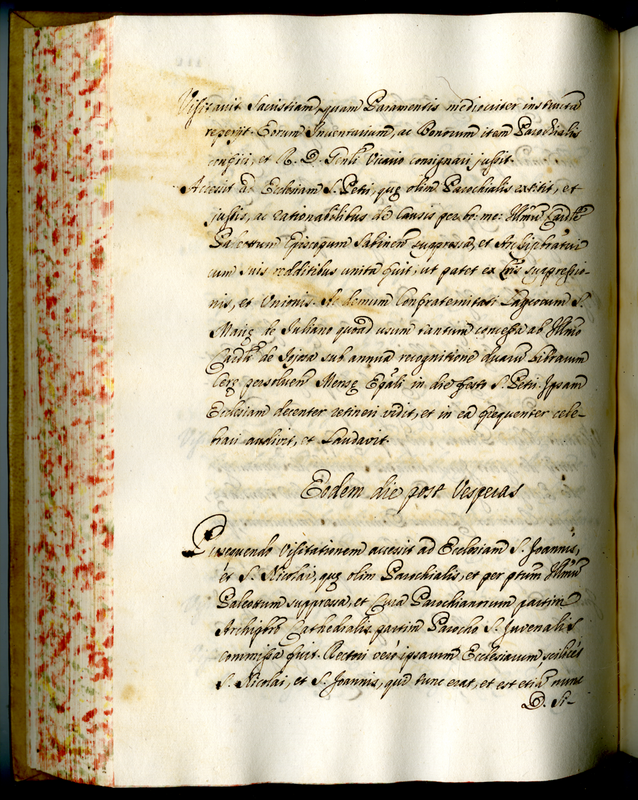 Visitavit Sacristiam, quam Paramentis mediocriter instructa
reperijt. Eorum Inventarium, ac Bonorum item Parochialis
confici, et R. D. Genli Vicario consignari jussit.
Accessit ad Ecclesiam S. Petri, quę olim Parochialis extitit, et
justis, ac rationabilibus de Causis per bo: me: Illmu Cardlē
Paleotum Episcopum Sabinen suppressa, et Archiptratui
cum suis redditibus unita fuit, ut patet ex Lris suppressio-
nis, et Unionis. Ac demum Confraternitati Laycorum S.
Marię de Juliano quoad usum tantum concessa ab Illmo
Cardli de Sejma sub annua recognitione duaru Librarum
Cerę persolven Mensę Epāli in die festo S. Petri. Ipsam
Ecclesiam decenter retineri vidit, et in ea frequenter cele-
brari audivit, et laudavit.
Eodem die post Vesperas
Prosequendo Visitationem accessit ad Ecclesiam S. Joannis,
et S. Nicolai, quę olim Parochialis, et per ptum Illmu
Paleotum suppressa, et Cura Parochianorum partim
Archiptro Cathedralis, partim Parocho S. Juvenalis
commissa fuit. Rectori vero ipsarum Ecclesiarum scilicet
S. Nicolai, et S. Joannis, qui tunc erat, et est etia nunc
D. Si-